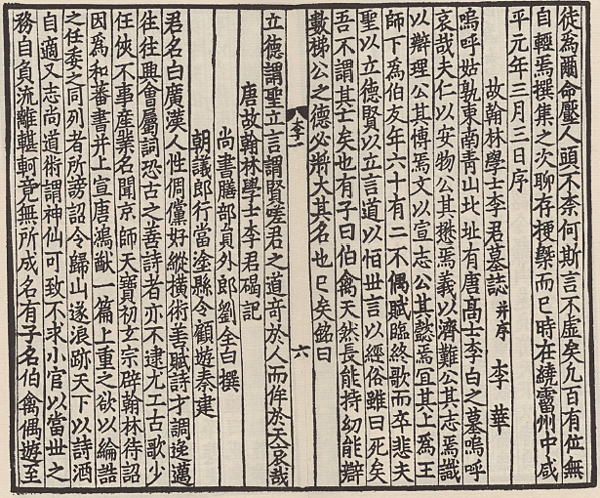 徒為爾命壓人頭不柰何斯言不虛矣凡百有位無
自輕焉撰集之次聊存梗槩而已時在繞霤州中咸
平元年三月三日序
故翰林學士李君墓誌 并序 李華
嗚呼姑孰東南青山北址有唐高士李白之墓嗚呼
哀哉夫仁以安物公其懋焉義以濟難公其志焉識
以辯理公其博焉文以宣志公其懿焉宜其上為王
師下為伯友年六十有二不偶賦臨終歌而卒悲夫
聖以立德賢以立言道以恒世言以經俗雖曰死矣
吾不謂其亡矣也有子曰伯禽天然長能持幼能辯
數梯公之德必將大其名也已矣銘曰
李一 六
立德謂聖立言謂賢嗟君之道奇於人而侔於天哀哉
唐故翰林學士李君碣記
尚書膳部員外郎劉全白撰
朝議郎行當塗縣令顧遊秦建
君名白廣漢人性倜儻好縱橫術善賦詩才調逸邁
往往興會屬詞恐古之善詩者亦不逮尤工古歌少
任俠不事產業名聞京師天寶初玄宗辟翰林待詔
因為和蕃書并上宣唐鴻猷一篇上重之欲以綸誥
之任委之同列者所謗詔令歸山遂浪跡天下以詩酒
自適又志尚道術謂神仙可致不求小官以當世之
務自負流離轗軻竟無所成名有子名伯禽偶遊至